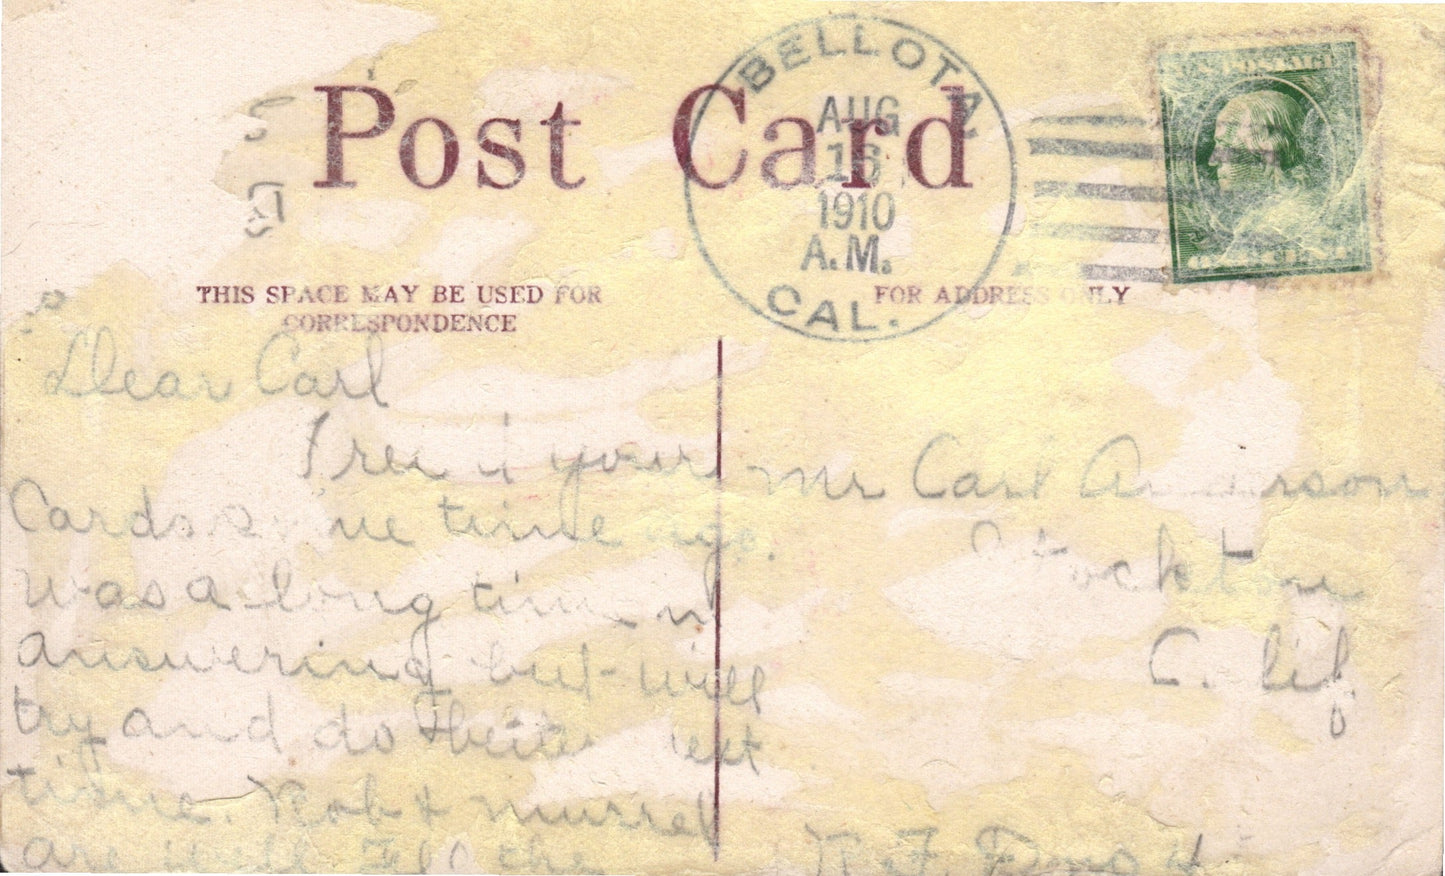 Post Card
BELLOTA,
AUG
16
1910
A.M.
CAL.
U.S. POSTAGE
THIS SPACE MAY BE USED FOR
CORRESPONDENCE
FOR ADDRESS ONLY
Dear Carl
I rec'd your
Cards some time ago.
was a long time in
answering but will
try and do better next
time. Rob & Murrel
are well
the
Mr Carl Anderson
Stockton
Calif
R.F.D. no 4